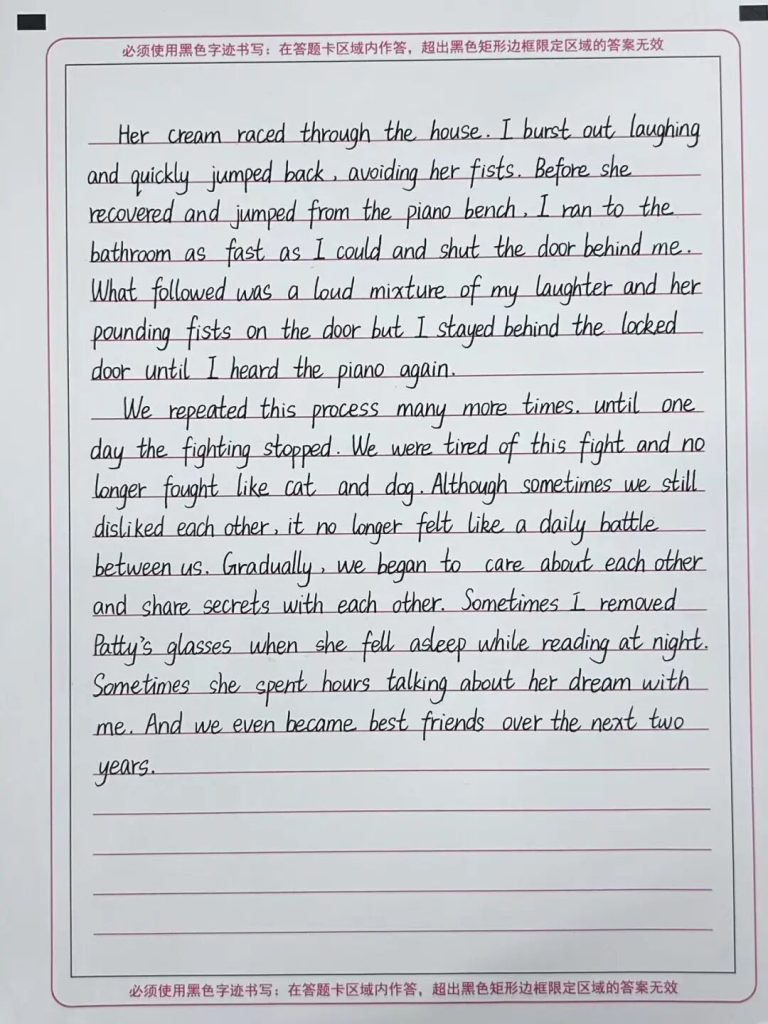 必须使用黑色字迹书写：在答题卡区域内作答，超出黑色矩形边框限定区域的答案无效
Her cream raced through the house. I burst out laughing
and quickly jumped back, avoiding her fists. Before she
recovered and jumped from the piano bench, I ran to the
bathroom as fast as I could and shut the door behind me.
What followed was a loud mixture of my laughter and her
pounding fists on the door but I stayed behind the locked
door until I heard the piano again.
We repeated this process many more times. until one
day the fighting stopped. We were tired of this fight and no
longer fought like cat and dog. Although sometimes we still
disliked each other, it no longer felt like a daily battle
between us. Gradually, we began to care about each other
and share secrets with each other. Sometimes I removed
Patty's glasses when she fell asleep while reading at night.
Sometimes she spent hours talking about her dream with
me. And we even became best friends over the next two
years.
必须使用黑色字迹书写：在答题卡区域内作答，超出黑色矩形边框限定区域的答案无效